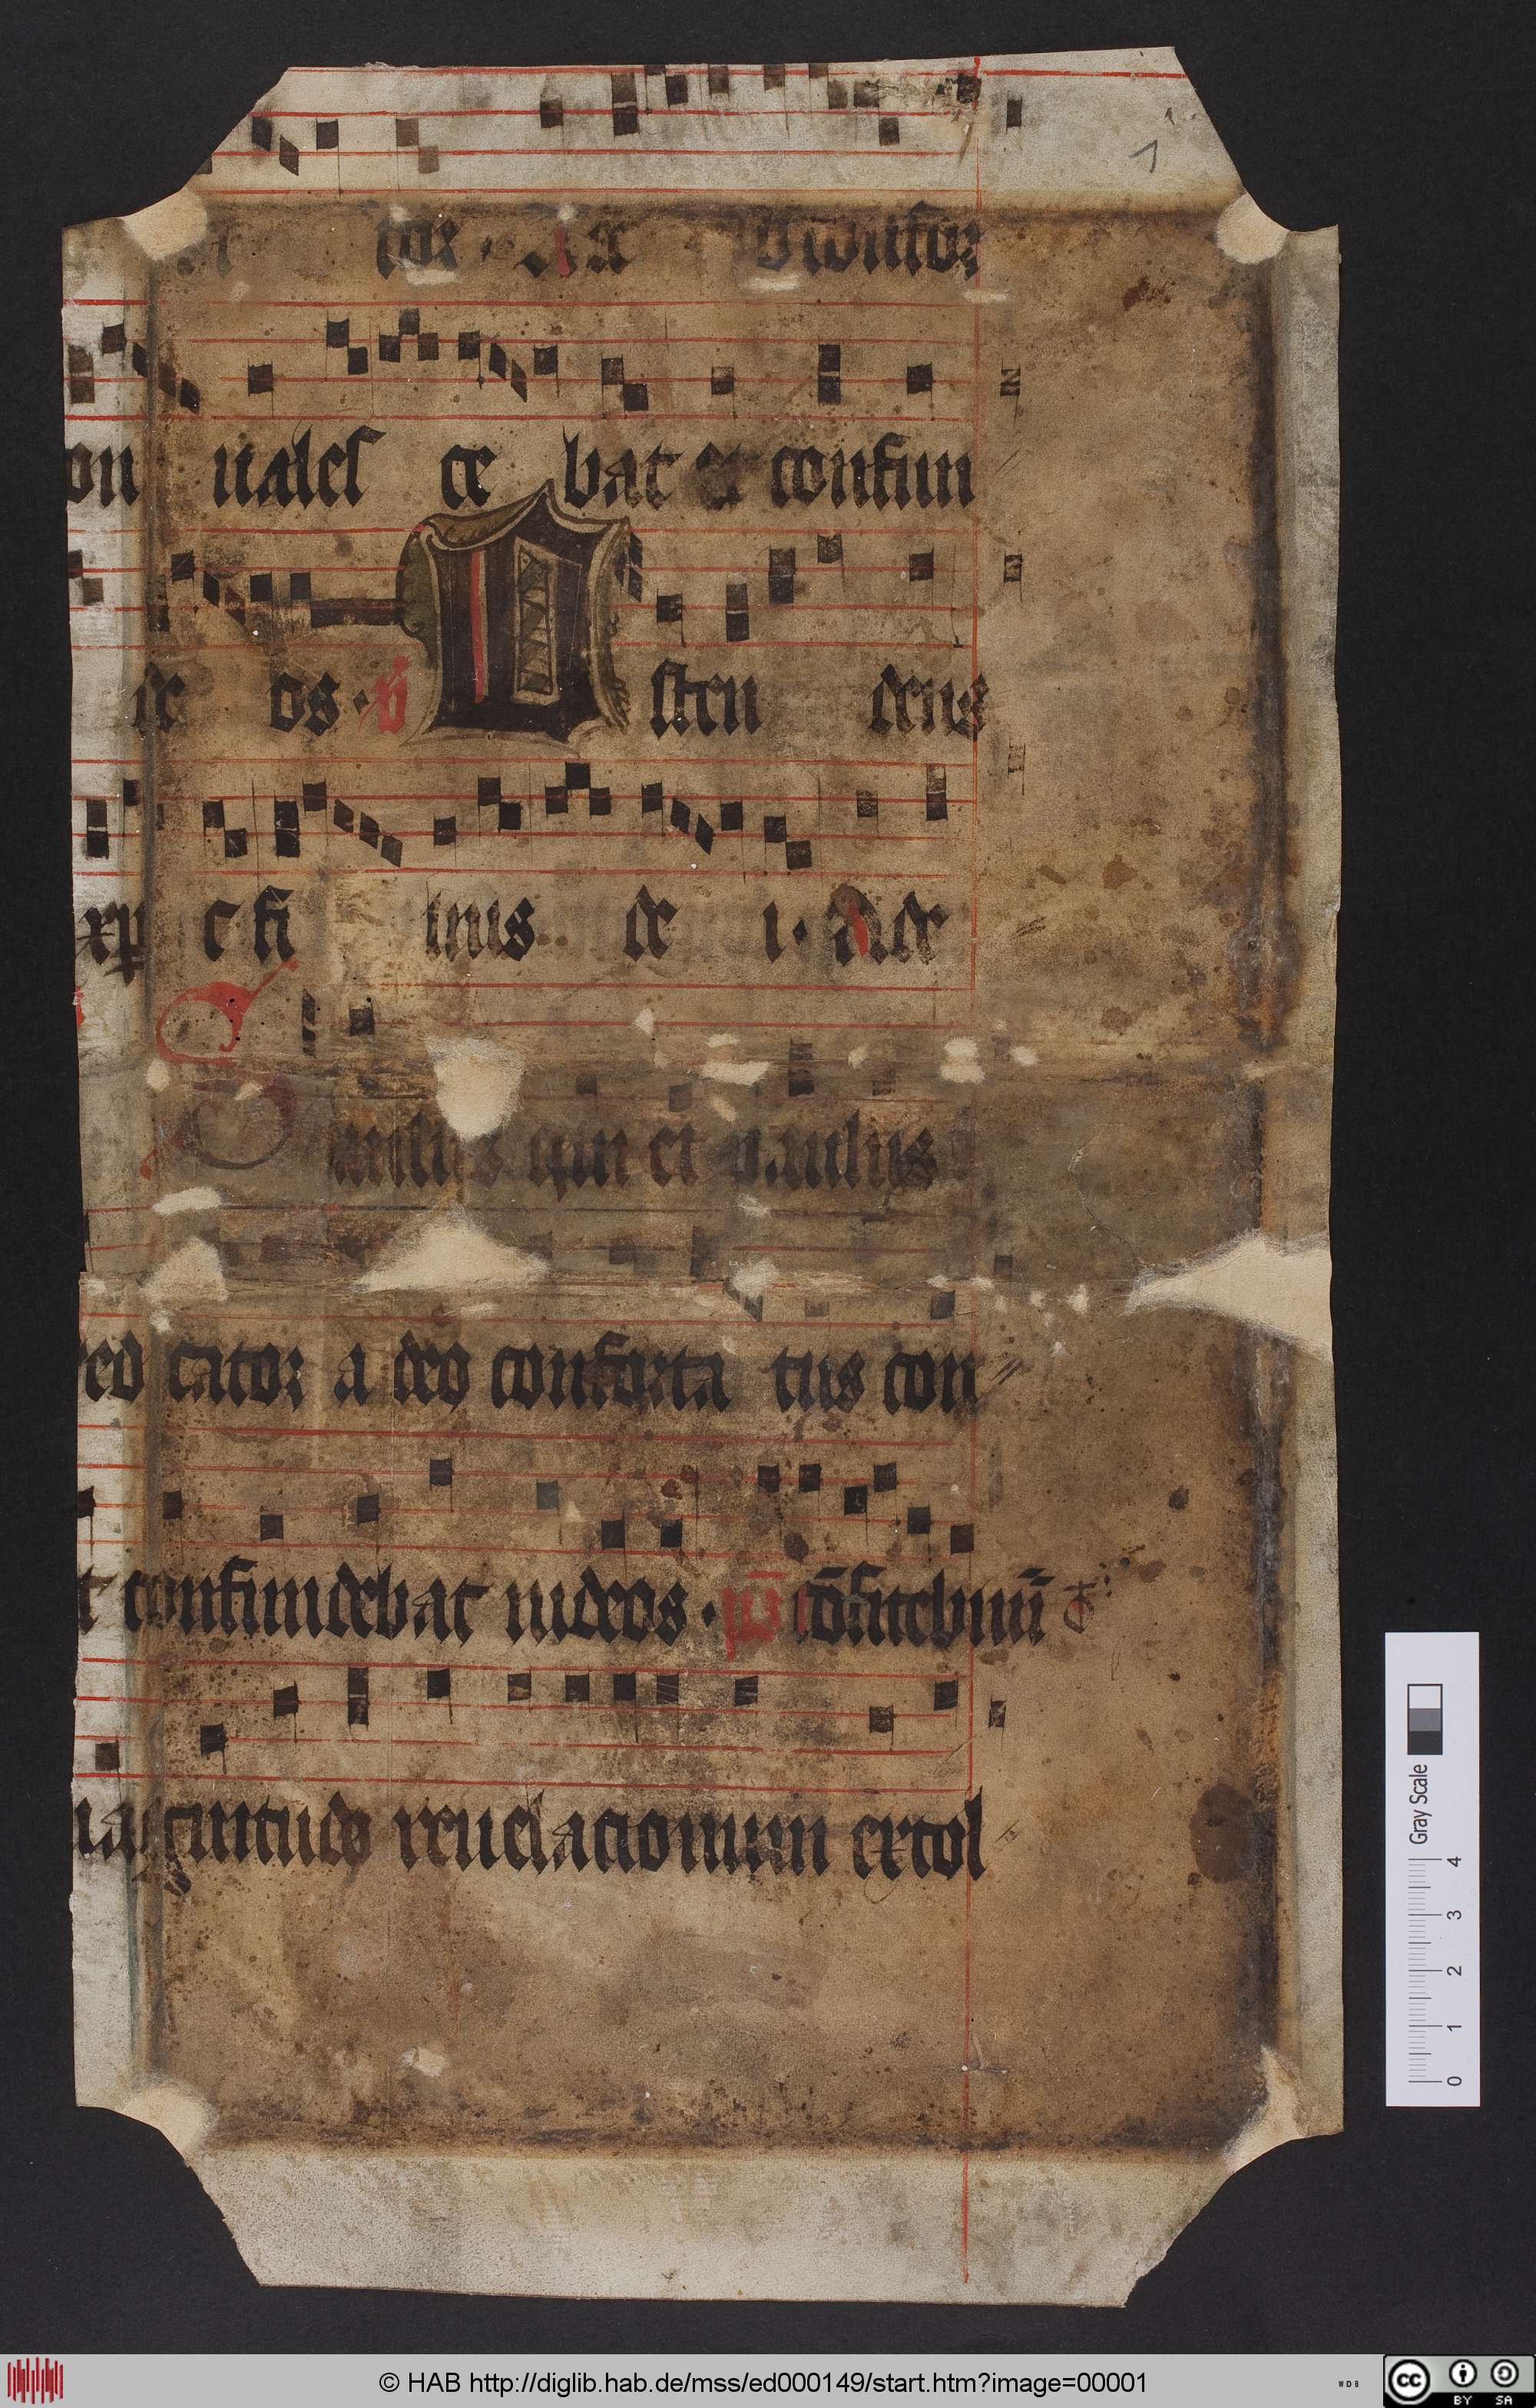 1
tor · A deo confor
on uales ce bat et confun
de os · v Osten dens
xpc fi lius de i · A de
Saulus qui et paulus
red cator a deo conforta tus con
t confundebat iudeos · ps Cōfitebimī
magnitudo reuelacionum extol
Gray Scale
0 1 2 3 4
© HAB http://diglib.hab.de/mss/ed000149/start.htm?image=00001
WDB
cc BY SA